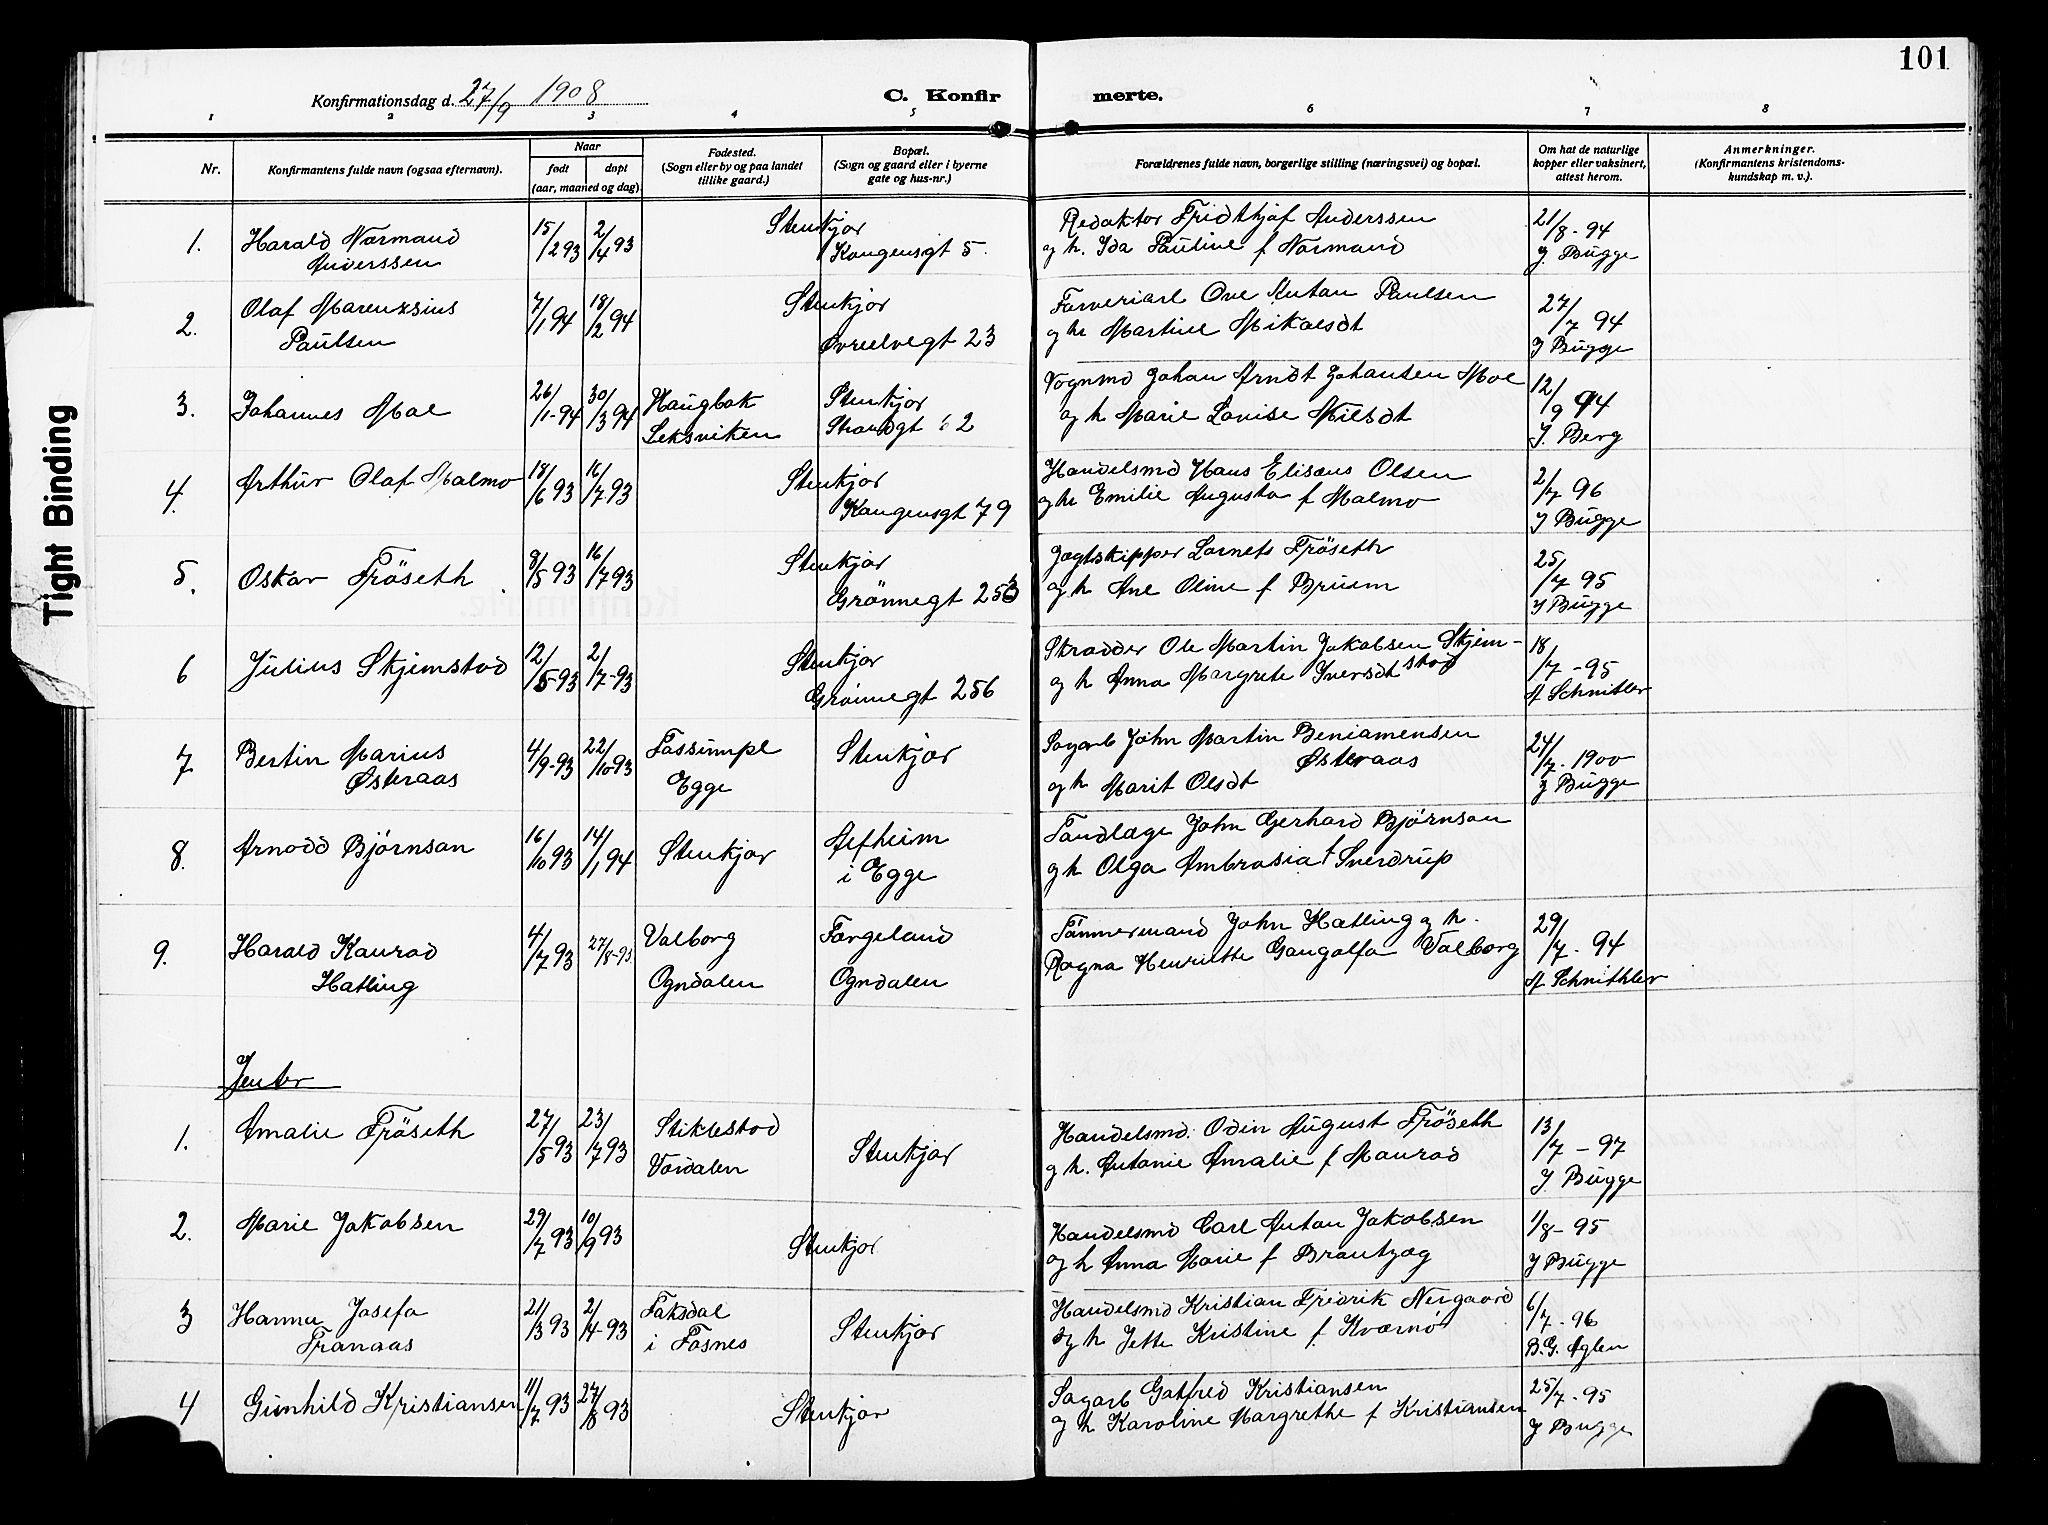 101
Konfirmationsdag d. 27/9 1908
C. Konfir
merte.
1 2 3 4 5 6 7 8
Nr.
Konfirmantens fulde navn (ogsaa efternavn).
Naar
født døpt
(aar, maaned og dag).
Fødested.
(Sogn eller by og paa landet
tillike gaard.)
Bopæl.
(Sogn og gaard eller i byerne
gate og hus-nr.)
Forældrenes fulde navn, borgerlige stilling (næringsvei) og bopæl.
Om hat de naturlige
kopper eller vaksinert,
attest herom.
Anmerkninger.
(Konfirmantens kristendoms-
kundskap m. v.).
1. Harald Normand 15/2 93 2/4 93 Stenkjær Redaktør Fridtkjof Anderssen 21/8 - 94
Anderssen Kongensgt 5. og h. Ida Pauline f Normand J. Bugge
2. Olaf Marenksius 7/1 94 18/2 94 Stenkjær Farveriarb Ove Kutan Paulsen 27/7 94
Paulsen Øvreelvegt 23 og h Martine Mikalsdt J Bugge
3. Johannes Moe 26/1-94 30/3 94 Haugbak Stenkjær Vognmd Johan Arndt Johansen Moe 12/9 94
Leksviken Strandgt 2 og h Marie Lovise Nilsdt J. Berg
4. Arthur Olaf Malmo 18/6 93 16/7 93 Stenkjær Handelsmd Hans Elisæus Olsen 2/7 96
Kongensgt 79 og h Emilie Augusta f Malmo J Bugge
5. Oskar Fröseth 8/5 93 16/7 93 Stenkjær Jægtskipper Lornets Fröseth 25/7 95
Grönnegt 253 og h Ane Oline f Bruem J Bugge
6 Julius Skjemstad 12/5-93 2/7-93 Stenkjær Skradder Ole Martin Jakobsen Skjem-
stad 18/7 - 95
Grönnegt 256 og h Anna Margrete Iversdt M Schnitler
7. Bertin Marius 4/9-93 22/10-93 Fossumpl Stenkjær Sagarb John Martin Beniamensen 24/7 - 1900
Østeraas Egge Østeraas
og h Marit Olsdt J Bugge
8. Arnodd Bjørnson 16/10 93 14/1 94 Stenkjær Alfheim Tandlæge John Gerhard Bjørnson
i Egge og h Olga Ambrosia f Sverdrup
9. Harald Konrad 4/7 93 27/8-93 Valborg Færgeland Tömmermand John Hatling og h. 29/7 - 94
Hatling Ogndalen Ogndalen Ragna Henriette Gangolfa Valborg M Schnithler
Jenter
1. Amalie Fröseth 27/5 93 23/7 93 Stiklestad Stenkjær Handelsmd. Odin August Fröseth 13/7 - 97
Værdalen og h. Antonie Amalie f Maurad J. Bugge
2. Marie Jakobsen 29/7 93 10/9 93 Stenkjær Handelsmd Carl Anton Jakobsen 1/8 - 95
og h Anna Marie f Brantzæg J Bugge
3 Hanna Josefa 21/3 93 2/4-93 Faksdal Stenkjær Handelsmd Kristian Fredrik Nergaard 6/7 - 96
Tranaas i Fosnes og h Jette Kristine f. Kværnø B.G. Aglen
4 Gunhild Kristiansen 11/7 93 27/8 93 Stenkjær Sagarb Gotfred Kristiansen 25/7 - 95
og h Karoline Margrethe f Kristiansen J Bugge
Tight Binding